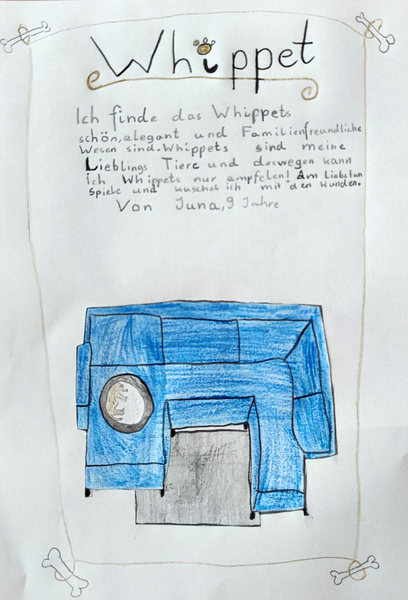 Whippet
Ich finde das Whippets
schön, elegant und Familienfreundliche
Wesen sind. Whippets sind meine
Lieblings Tiere und deswegen kann
ich Whippets nur ampfelen! Am liebsten
Spiele und kuschel ich mit den Hunden.
Von Juna, 9 Jahre